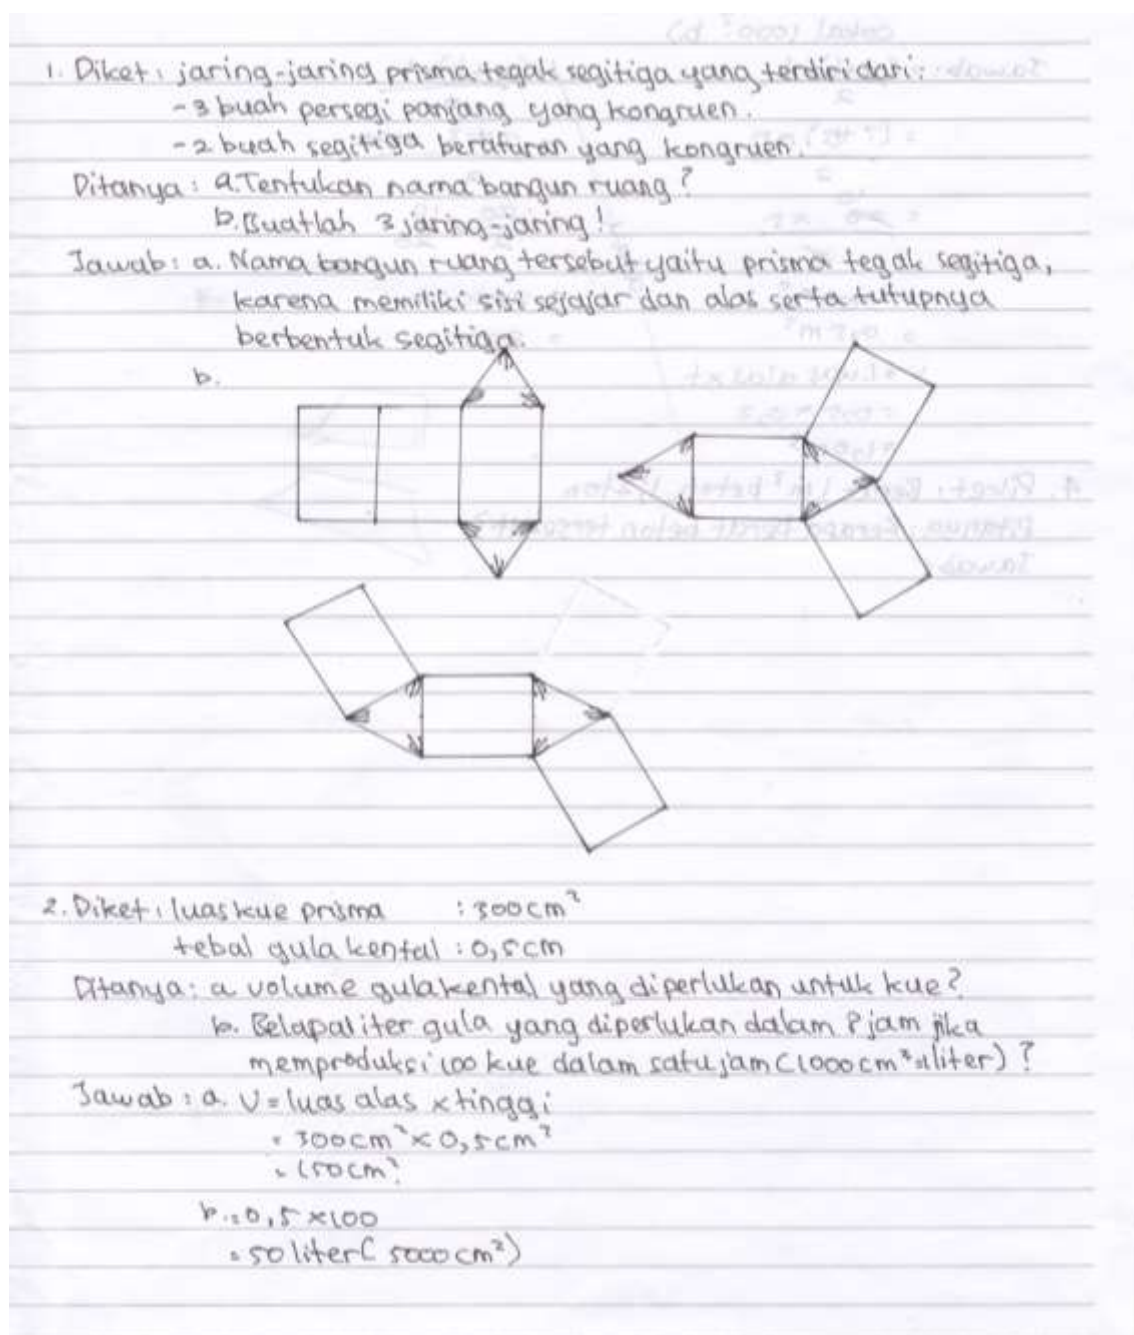 1. Diket : jaring-jaring prisma tegak segitiga yang terdiri dari :
- 3 buah persegi panjang yang kongruen.
- 2 buah segitiga beraturan yang kongruen.
Ditanya : a. Tentukan nama bangun ruang ?
b. Buatlah 3 jaring-jaring !
Jawab : a. Nama bangun ruang tersebut yaitu prisma tegak segitiga,
karena memiliki sisi sejajar dan alas serta tutupnya
berbentuk segitiga.
b.
2. Diket : luas kue prisma : 300 cm²
tebal gula kental : 0,5 cm
Ditanya : a volume gula kental yang diperlukan untuk kue ?
b. Belapa liter gula yang diperlukan dalam 8 jam jika
memproduksi 100 kue dalam satu jam (1000 cm³ = 1 liter) ?
Jawab : a. V = luas alas x tinggi
= 300 cm² x 0,5 cm²
= 150 cm²
b. = 0,5 x 100
= 50 liter ( 5000 cm²)